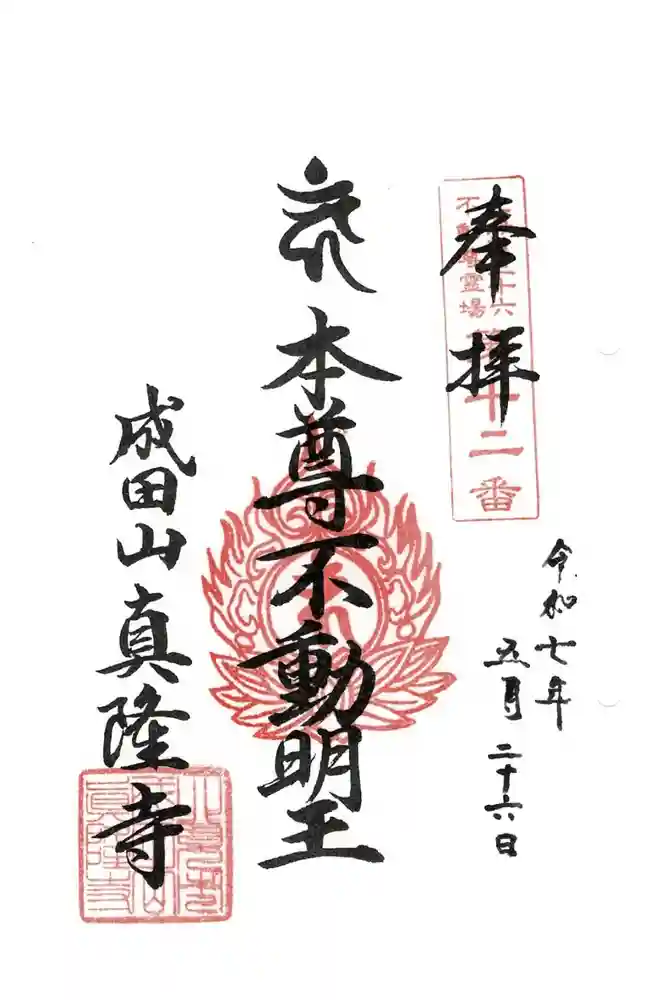 奉拝
不動尊霊場
十六
第十二番
令和七年
五月二十六日
本尊不動明王
成田山真隆寺